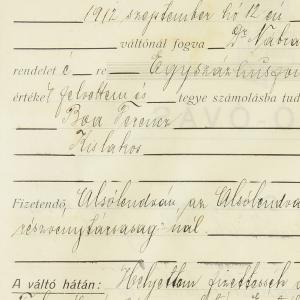 1912 szeptember hó 12 én
váltónál fogva Dr Nábrá
rendelet é re Egyszázhúsz
értéket felvettem és tegye számolásba tud
Boa Ferencz
Kislakos
Fizetendő, Alsólendván az Alsólendva
részvénytársaság nál.
A váltó hátán: Helyettem fizettessék